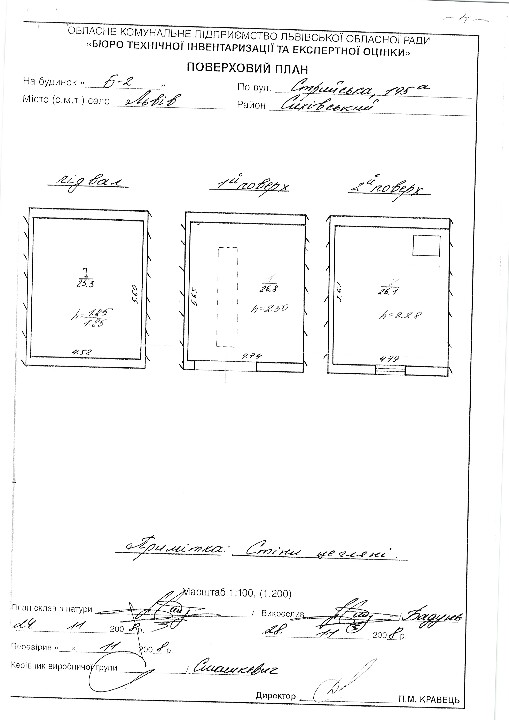 ОБЛАСНЕ КОМУНАЛЬНЕ ПІДПРИЄМСТВО ЛЬВІВСЬКОЇ ОБЛАСНОЇ РАДИ
«БЮРО ТЕХНІЧНОЇ ІНВЕНТАРИЗАЦІЇ ТА ЕКСПЕРТНОЇ ОЦІНКИ»
ПОВЕРХОВИЙ ПЛАН
На будинок « Б-2 По вул. Стрийська, 195а
Місто (с.м.т.) село Львів Район Сихівський
підвал 1й поверх 2й поверх
25.3 5.60
4.52
26.8 5.65
h=2.50
4.74
26.7
h=2.28
4.79
Примітка: Стіни цегляні.
Масштаб 1:100, (1:200)
План склав з натури Викреслив Бадунь
24 11 2008р. 28 11 2008р.
Перевірив « » 11 2008р.
Керівник виробничої групи Сташкевич
Директор П.М. КРАВЕЦЬ